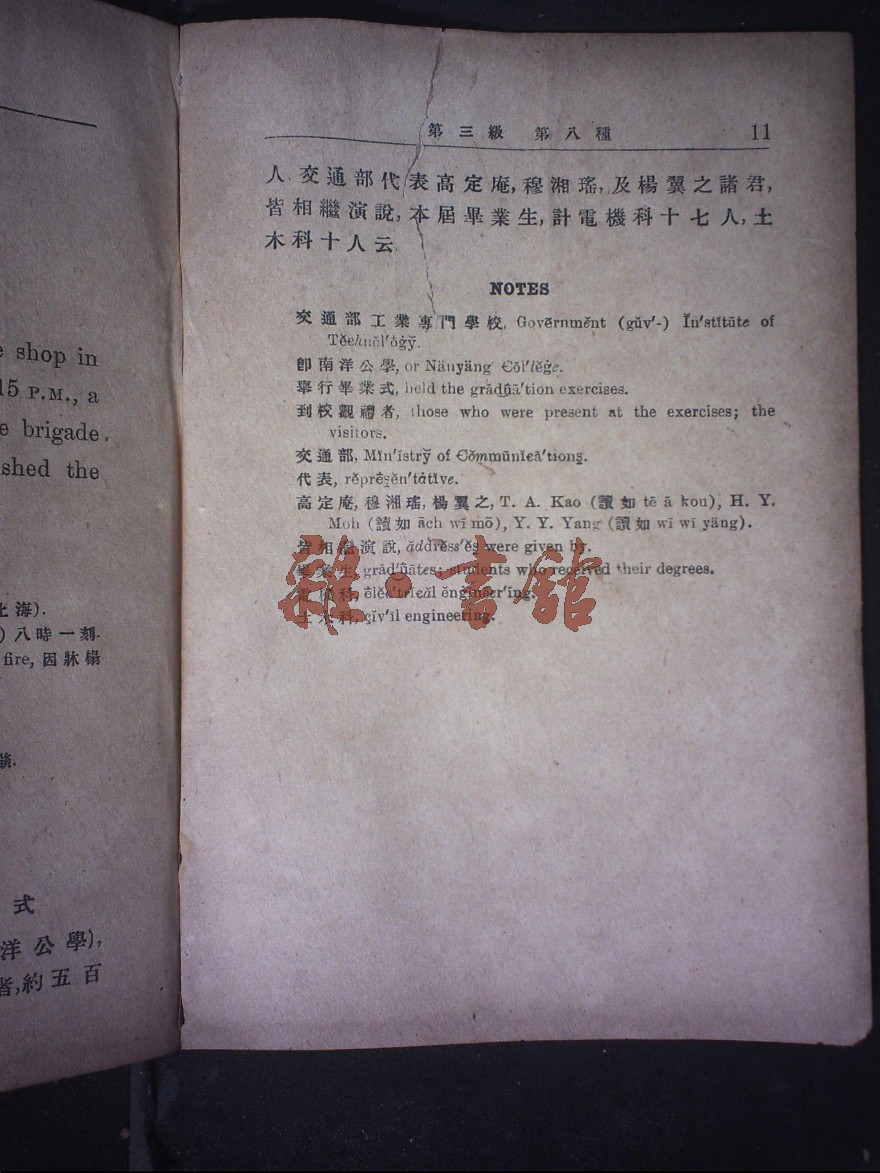 e shop in
15 P.M., a
e brigade
shed the
上海).
) 八時一刻.
fire, 因牀榻
燄.
式
洋公學),
者,約五百
第三級 第八種 11
人. 交通部代表高定庵, 穆湘瑤, 及楊翼之諸君,
皆相繼演說, 本屆畢業生, 計電機科十七人, 土
木科十人云
NOTES
交通部工業專門學校, Govẽrnmĕnt (gŭv'-) Ĭn'stĭtūte of
Tĕehnŏl'ōġў.
卽南洋公學, or Nänyäng Cŏl'lĕġe.
舉行畢業式, held the grădūā'tion exercises.
到校觀禮者, those who were present at the exercises; the
visitors.
交通部, Mĭn'ĭstrў of Cŏmmūnĭcā'tions.
代表, rĕprēsĕn'tȧtĭve.
高定庵, 穆湘瑤, 楊翼之, T. A. Kao (讀如 tē ā kou), H. Y.
Moh (讀如 āch wī mō), Y. Y. Yang (讀如 wī wī yäng).
皆相繼演說, ăddrĕss'ĕs were given by.
畢業生, grăd'ūātes; students who received their degrees.
電機科, ēlĕc'trĭcăl ĕngĭneer'ĭng.
土木科, çĭv'ĭl engineering.
雜·書館